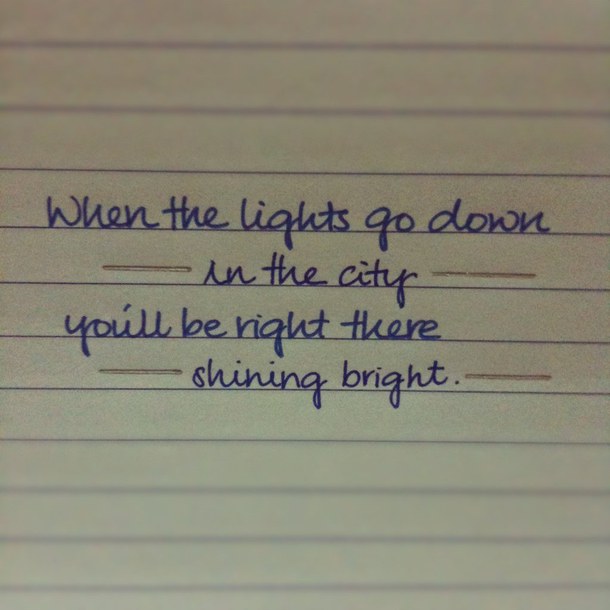 When the lights go down
in the city
you'll be right there
shining bright.